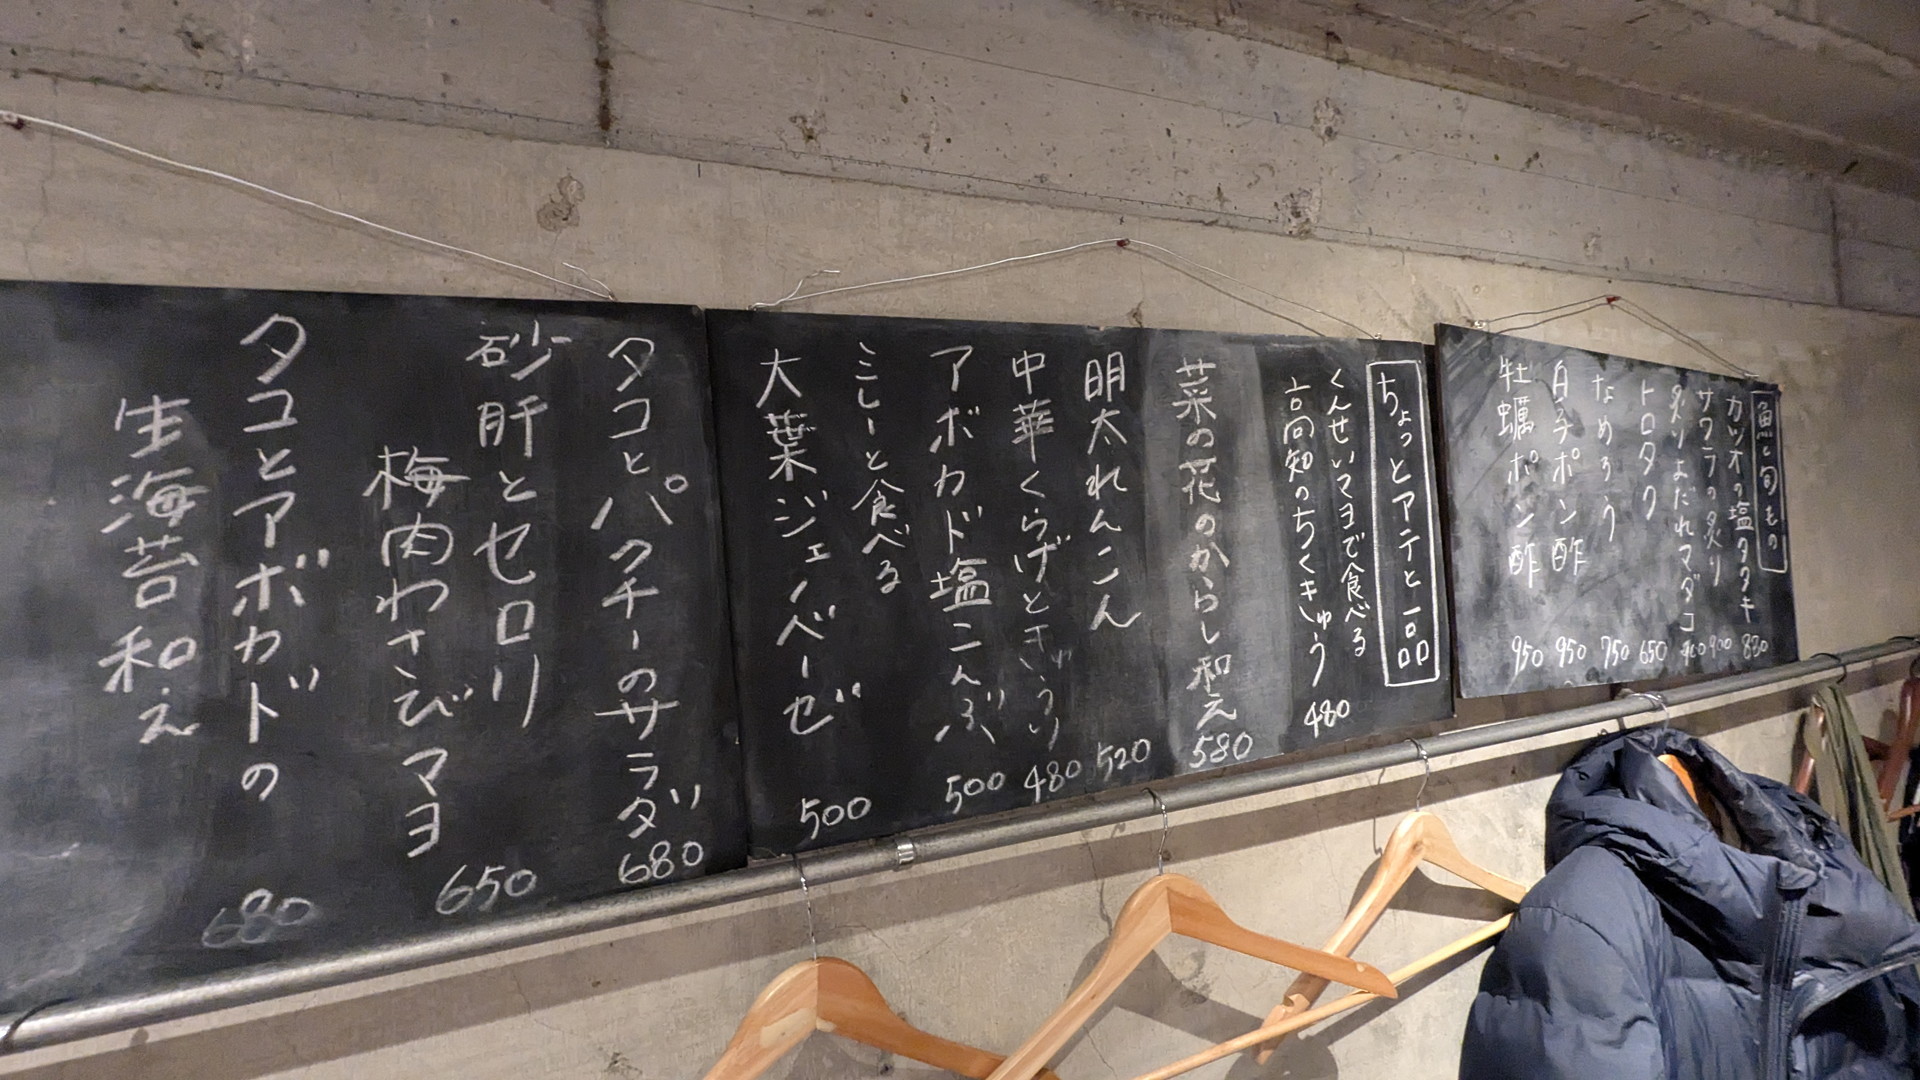 魚と旬もの
カツオの塩タタキ 830
サワラの炙り 900
炙りよだれマダコ
トロタク 650
なめろう 750
白子ポン酢 950
牡蠣ポン酢 950
ちょっとアテと一品
くんせいマヨで食べる
高知のちくきゅう 480
菜の花のからし和え 580
明太れんこん 520
中華くらげときゅうり 480
アボカド塩こんぶ 500
と食べる
大葉ジェノベーゼ 500
タコとパクチーのサラダ 680
砂肝とセロリ
梅肉わさびマヨ 650
タコとアボカドの
生海苔和え 680